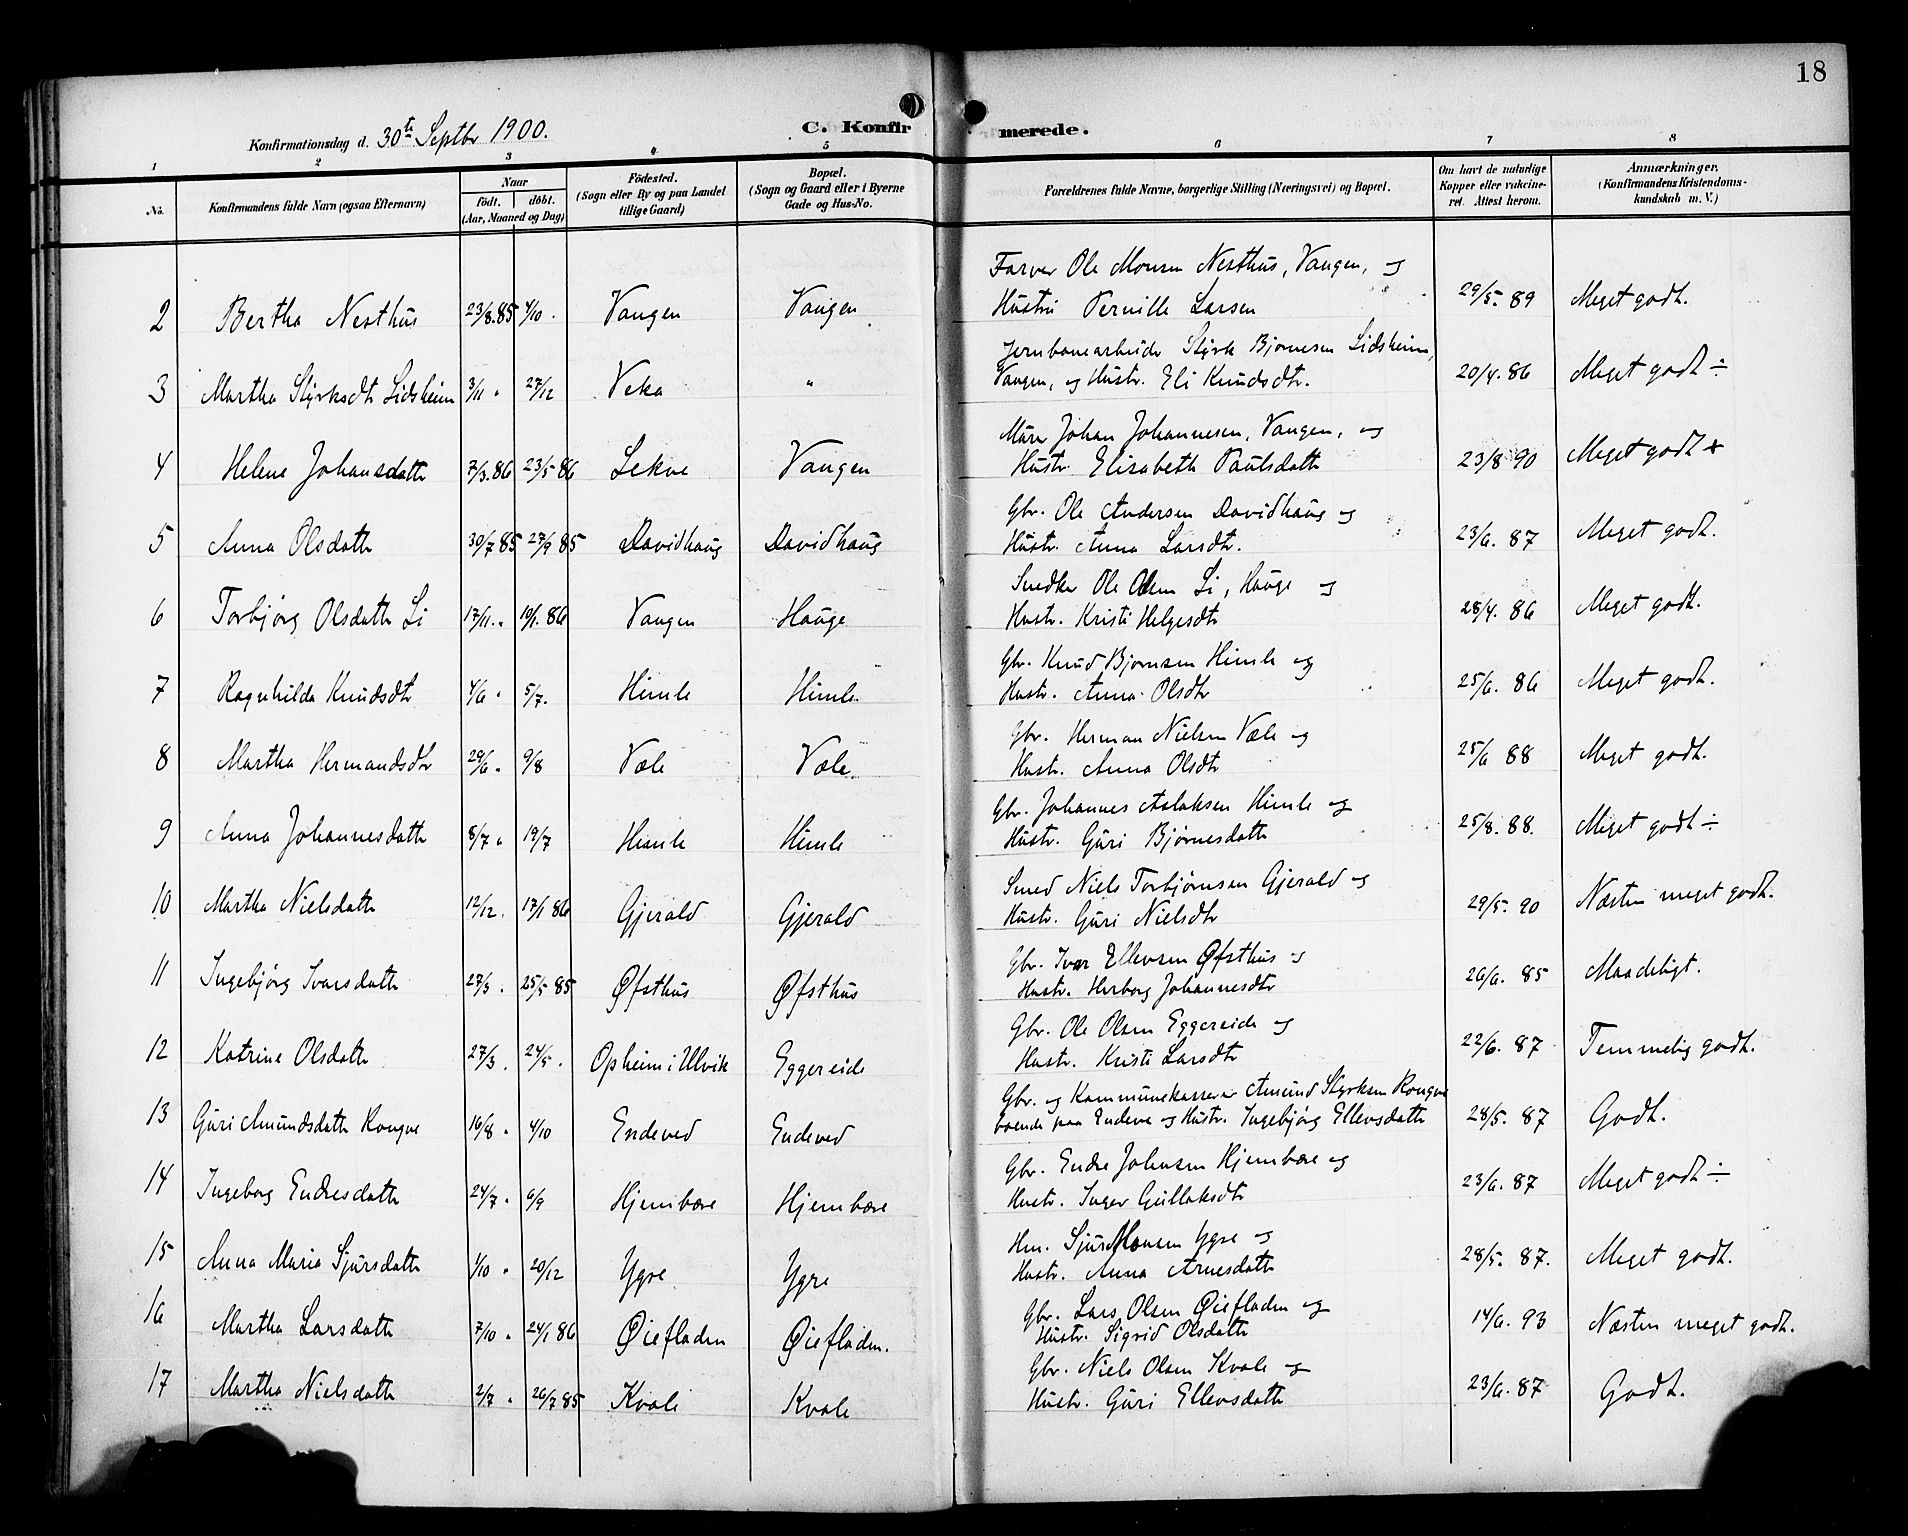 18
Konfirmationsdag d. 30te Septbr 1900. C. Konfirmerede.
1 2 3 4 5 6 7 8
No. Konfirmandens fulde Navn (ogsaa Efternavn) Naar født. døbt. (Aar, Maaned og Dag) Fødested. (Sogn eller By og paa Landet tillige Gaard) Bopæl. (Sogn og Gaard eller i Byerne Gade og Hus-No. Forældrenes fulde Navne, borgerlige Stilling (Næringsvei) og Bopæl. Om havt de naturlige Kopper eller vakcineret. Attest herom. Anmærkninger. (Konfirmandens Kristendomskundskab m. V.)
Farver Ole Monsen Nesthus, Vangen, og
2 Bertha Nesthus 23/8.85 4/10. Vangen Vangen Hustru Pernille Larsen 29/5. 89 Meget godt.
Jernbanearbeider Styrk Bjørnesen Lidsheim,
3 Martha Styrksdtr Lidsheim 3/11 " 27/12 Veka " Vangen, og Hustr. Eli Knudsdtr. 20/4. 86 Meget godt ÷
Murer Johan Johannesen, Vangen, og
4 Helene Johansdatter 7/3.86 23/5 86 Lekve Vangen Hustr. Elisabeth Paulsdatter 23/8 90 Meget godt +
Gbr. Ole Andersen Davidhaug og
5 Anna Olsdatter 30/7 85 27/9 85 Davidhaug Davidhaug Hustr. Anna Larsdtr. 23/6. 87 Meget godt.
Snedker Ole Olsen Li, Hauge og
6 Torbjørg Olsdatter Li 17/11. " 10/1. 86 Vangen Hauge Hustr. Kristi Helgesdtr 28/4. 86 Meget godt.
Gbr. Knud Bjørnsen Himle og
7 Ragnhilda Knudsdtr 4/6 " 5/7. Himle Himle Hustr. Anna Olsdtr 25/6. 86 Meget godt.
Gbr. Herman Nielsen Væle og
8 Martha Hermandsdtr 29/6 " 9/8 Væle Væle Hustr. Anna Olsdtr 25/6 88 Meget godt.
Gbr. Johannes Aslaksen Himle og
9 Anna Johannesdatter 8/7 " 19/7 Himle Himle Hustr. Guri Bjørnesdatter 25/8. 88. Meget godt ÷
Smed Niels Torbjørnsen Gjerald og
10 Martha Nielsdatter 12/12. 17/1 86 Gjerald Gjerald Hustr. Guri Nielsdtr 29/5. 90 Næsten meget godt.
Gbr. Ivar Ellevsen Øfsthus og
11 Ingebjørg Ivarsdatter 27/3. 25/5 85 Øfsthus Øfsthus Hustr. Herborg Johannesdtr 26/6. 85 Maadeligt.
Gbr. Ole Olsen Eggereide og
12 Katrine Olsdatter 27/3. 24/5. Opheim i Ulvik Eggereide Hustr. Kristi Larsdtr 22/6. 87 Temmelig godt.
Gbr. og Kommunekasserer Amund Styrksen Rongve
13 Guri Amundsdatter Rongve 16/8 " 4/10 Endeved Endeved boende paa Endeve og Hustr. Ingebjørg Ellevsdatter 28/5. 87 Godt.
Gbr. Endre Johnsen Hjembære og
14 Ingeborg Endresdatter 24/7 " 6/9 Hjembære Hjembære Hustr. Inger Gullaksdtr 23/6. 87 Meget godt ÷
Hm. Sjur Monsen Ygre og
15 Anna Maria Sjursdatter 1/10 " 20/12 Ygre Ygre Hustr. Anna Arnesdatter 28/5. 87. Meget godt.
Gbr. Lars Olsen Øiefladen og
16 Martha Larsdatter 7/10 " 24/1 86 Øiefladen Øiefladen. Hustr. Sigrid Olsdatter 14/6. 93 Næsten meget godt.
Gbr. Niels Olsen Kvale og
17 Martha Nielsdatter 2/7 " 26/7 85 Kvale Kvale Hustr. Guri Ellevsdatter 23/6. 87 Godt.